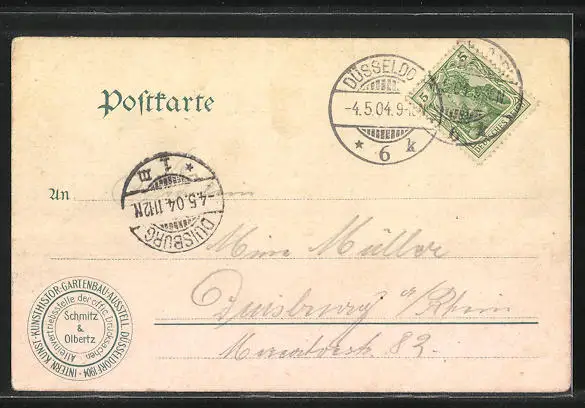 Postkarte
DÜSSELDO
-4.5.04.9-
* 6 k
5
5
DEUTSCHES
An
* 1 m
-4.5.04.11-12N
DUISBURG
Müller
Duisburg a/Rhein
Mercatorstr. 82.
INTERN. KUNST- KUNSTHISTOR- GARTENBAU-AUSSTELL. DÜSSELDORF 1904 *
Alleinvertriebsstelle der offic. Drucksachen
Schmitz
&
Olbertz